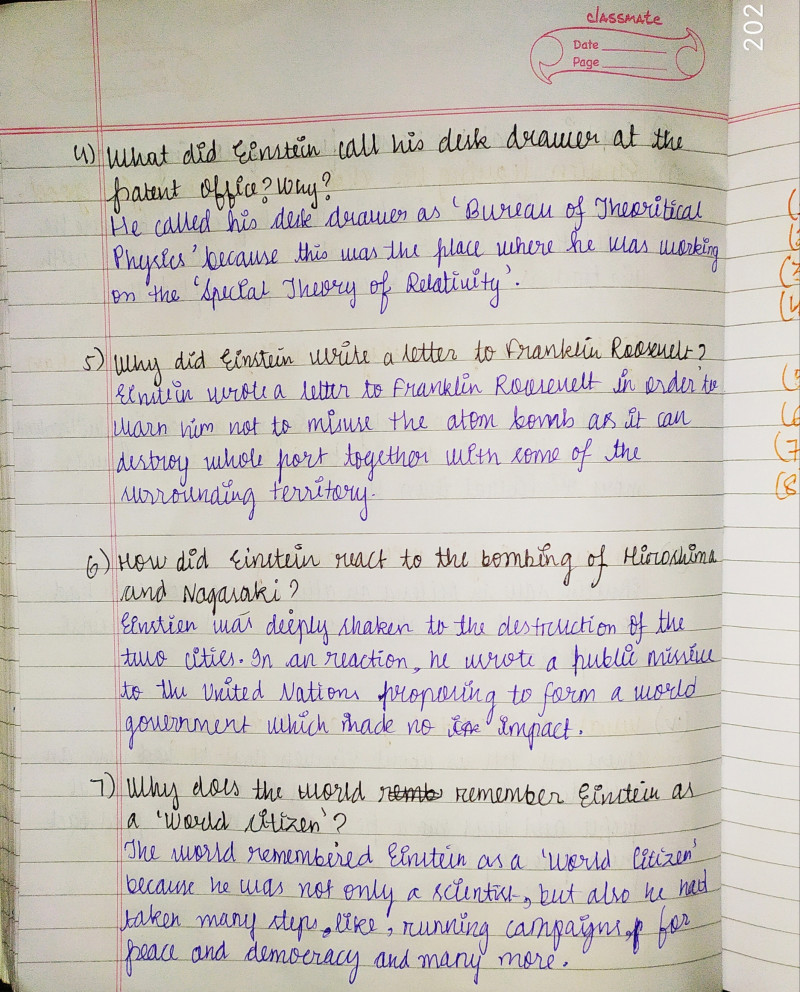 classmate
Date
Page
202
4) What did Einstein call his desk drawer at the
patent office? Why?
He called his desk drawer as 'Bureau of Theoritical
Physics' because this was the place where he was working
on the 'Special Theory of Relativity'.
5) Why did Einstein write a letter to Franklin Roosevelt?
Einstein wrote a letter to Franklin Roosevelt in order to
warn him not to misuse the atom bomb as it can
destroy whole port together with some of the
surrounding territory.
6) How did Einstein react to the bombing of Hiroshima
and Nagasaki?
Einstien was deeply shaken to the destruction of the
two cities. In an reaction, he wrote a public missive
to the United Nations proposing to form a world
government which made no impact.
7) Why does the world remb remember Einstein as
a 'World citizen'?
The world remembered Einstein as a 'World Citizen'
because he was not only a scientist, but also he had
taken many steps, like, running campaigns, for
peace and democracy and many more.